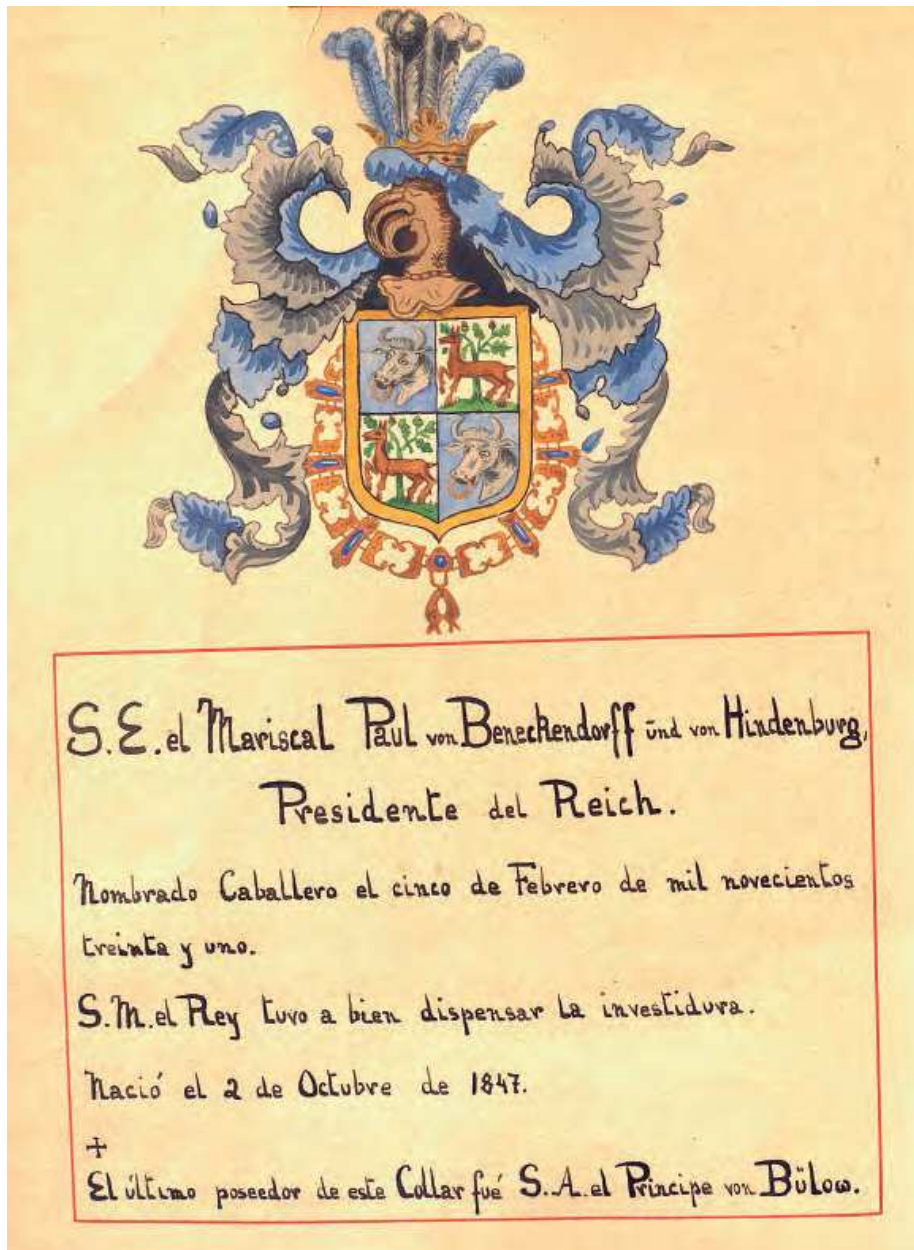 S.E. el Mariscal Paul von Beneckendorff ünd von Hindenburg,
Presidente del Reich.
Nombrado Caballero el cinco de Febrero de mil novecientos
treinta y uno.
S.M. el Rey tuvo a bien dispensar la investidura.
Nació el 2 de Octubre de 1847.
+
El último poseedor de este Collar fué S.A. el Príncipe von Bülow.